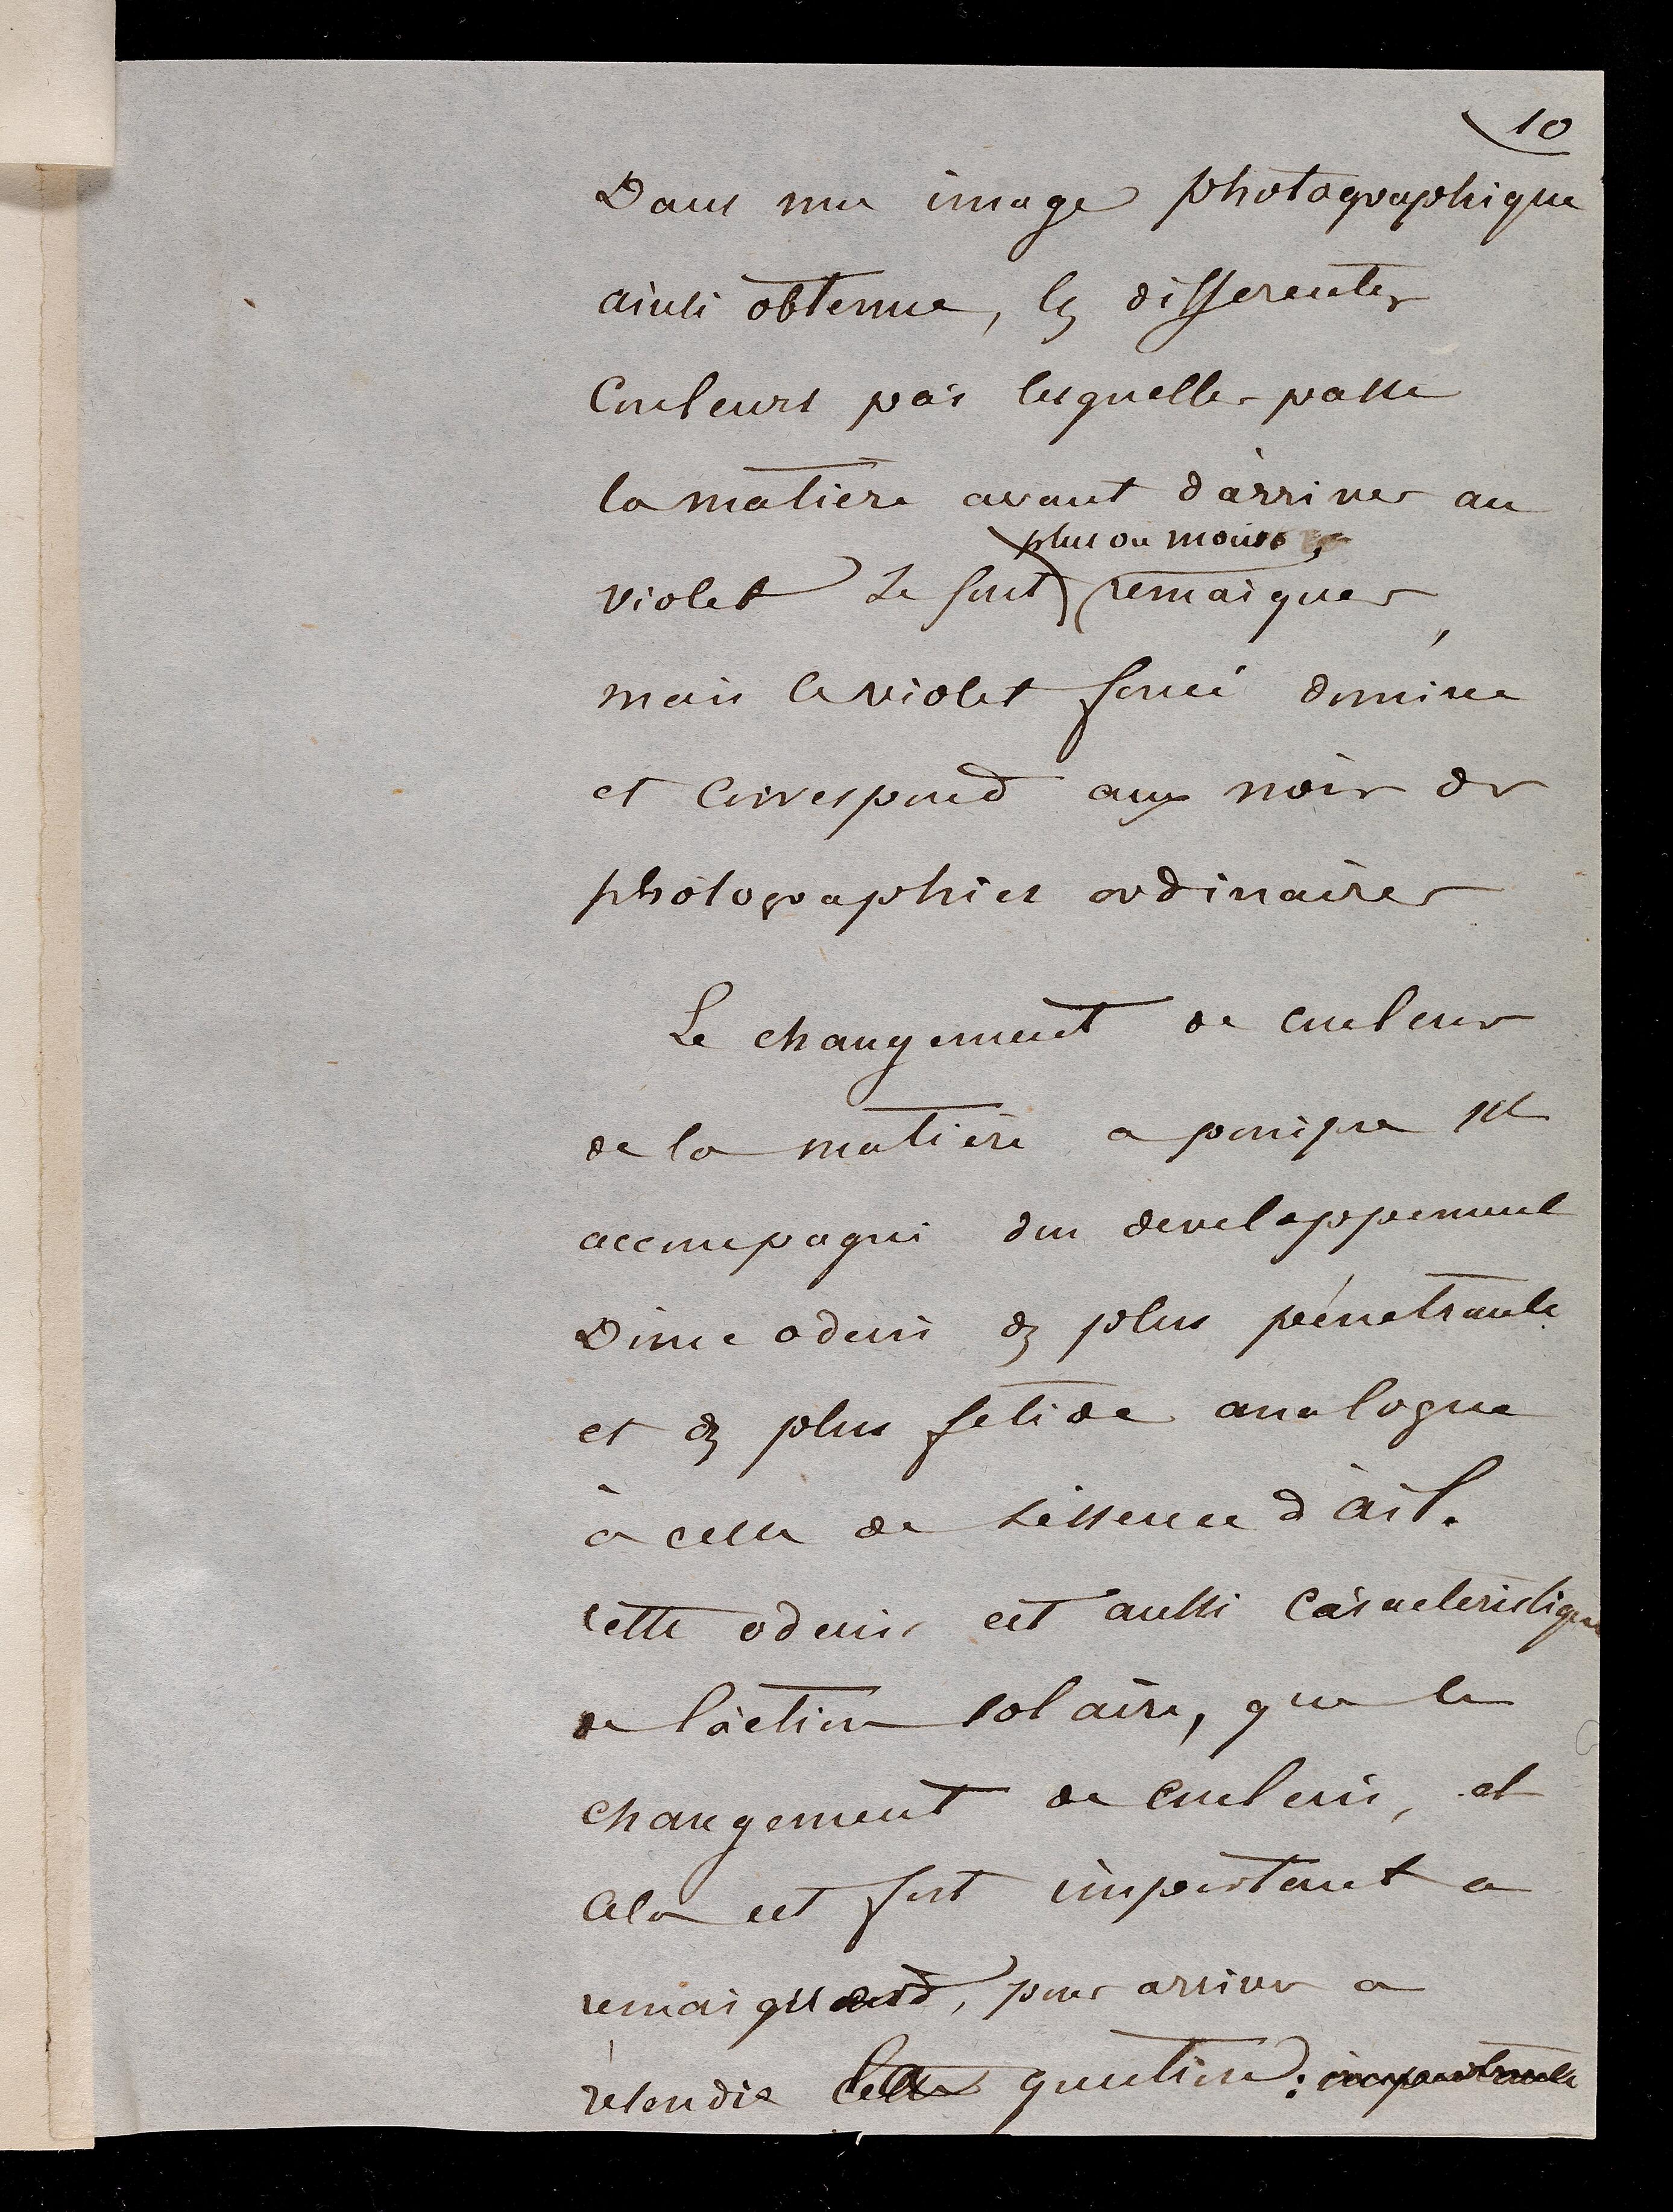 10
Dans une image photographique
ainsi obtenue, les differentes
Couleurs par lesquelles passe
la matière avant d'arriver au
plus ou moins
violet se font remarquer,
mais le violet foncé domine
et correspond aux noirs des
photographies ordinaires
Le changement de couleur
de la matière a pourpre est
accompagné d'un developpement
D'une odeur des plus pénetrante
et des plus fetide analogue
à celle de l'essence d'ail.
cette odeur est aussi caracteristique
de l'action solaire, que le
changement de couleur, et
Cela est fort important a
remarquer, pour arriver a
résoudre cette question: importante